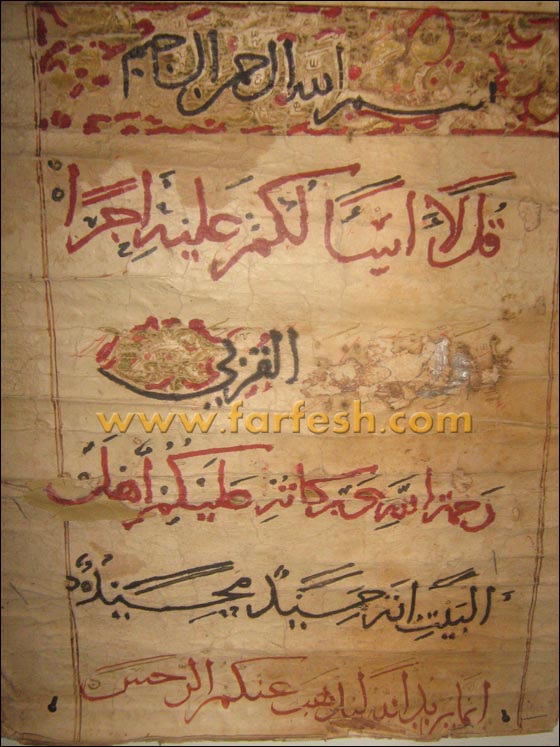 بسم الله الرحمن الرحيم
قل لا اسئالكم عليه اجرا
القربى
www.farfesh.com
رحمة الله وبركاته عليكم أهل
البيت انه حميد مجيد
انما يريد الله ليذهب عنكم الرجس